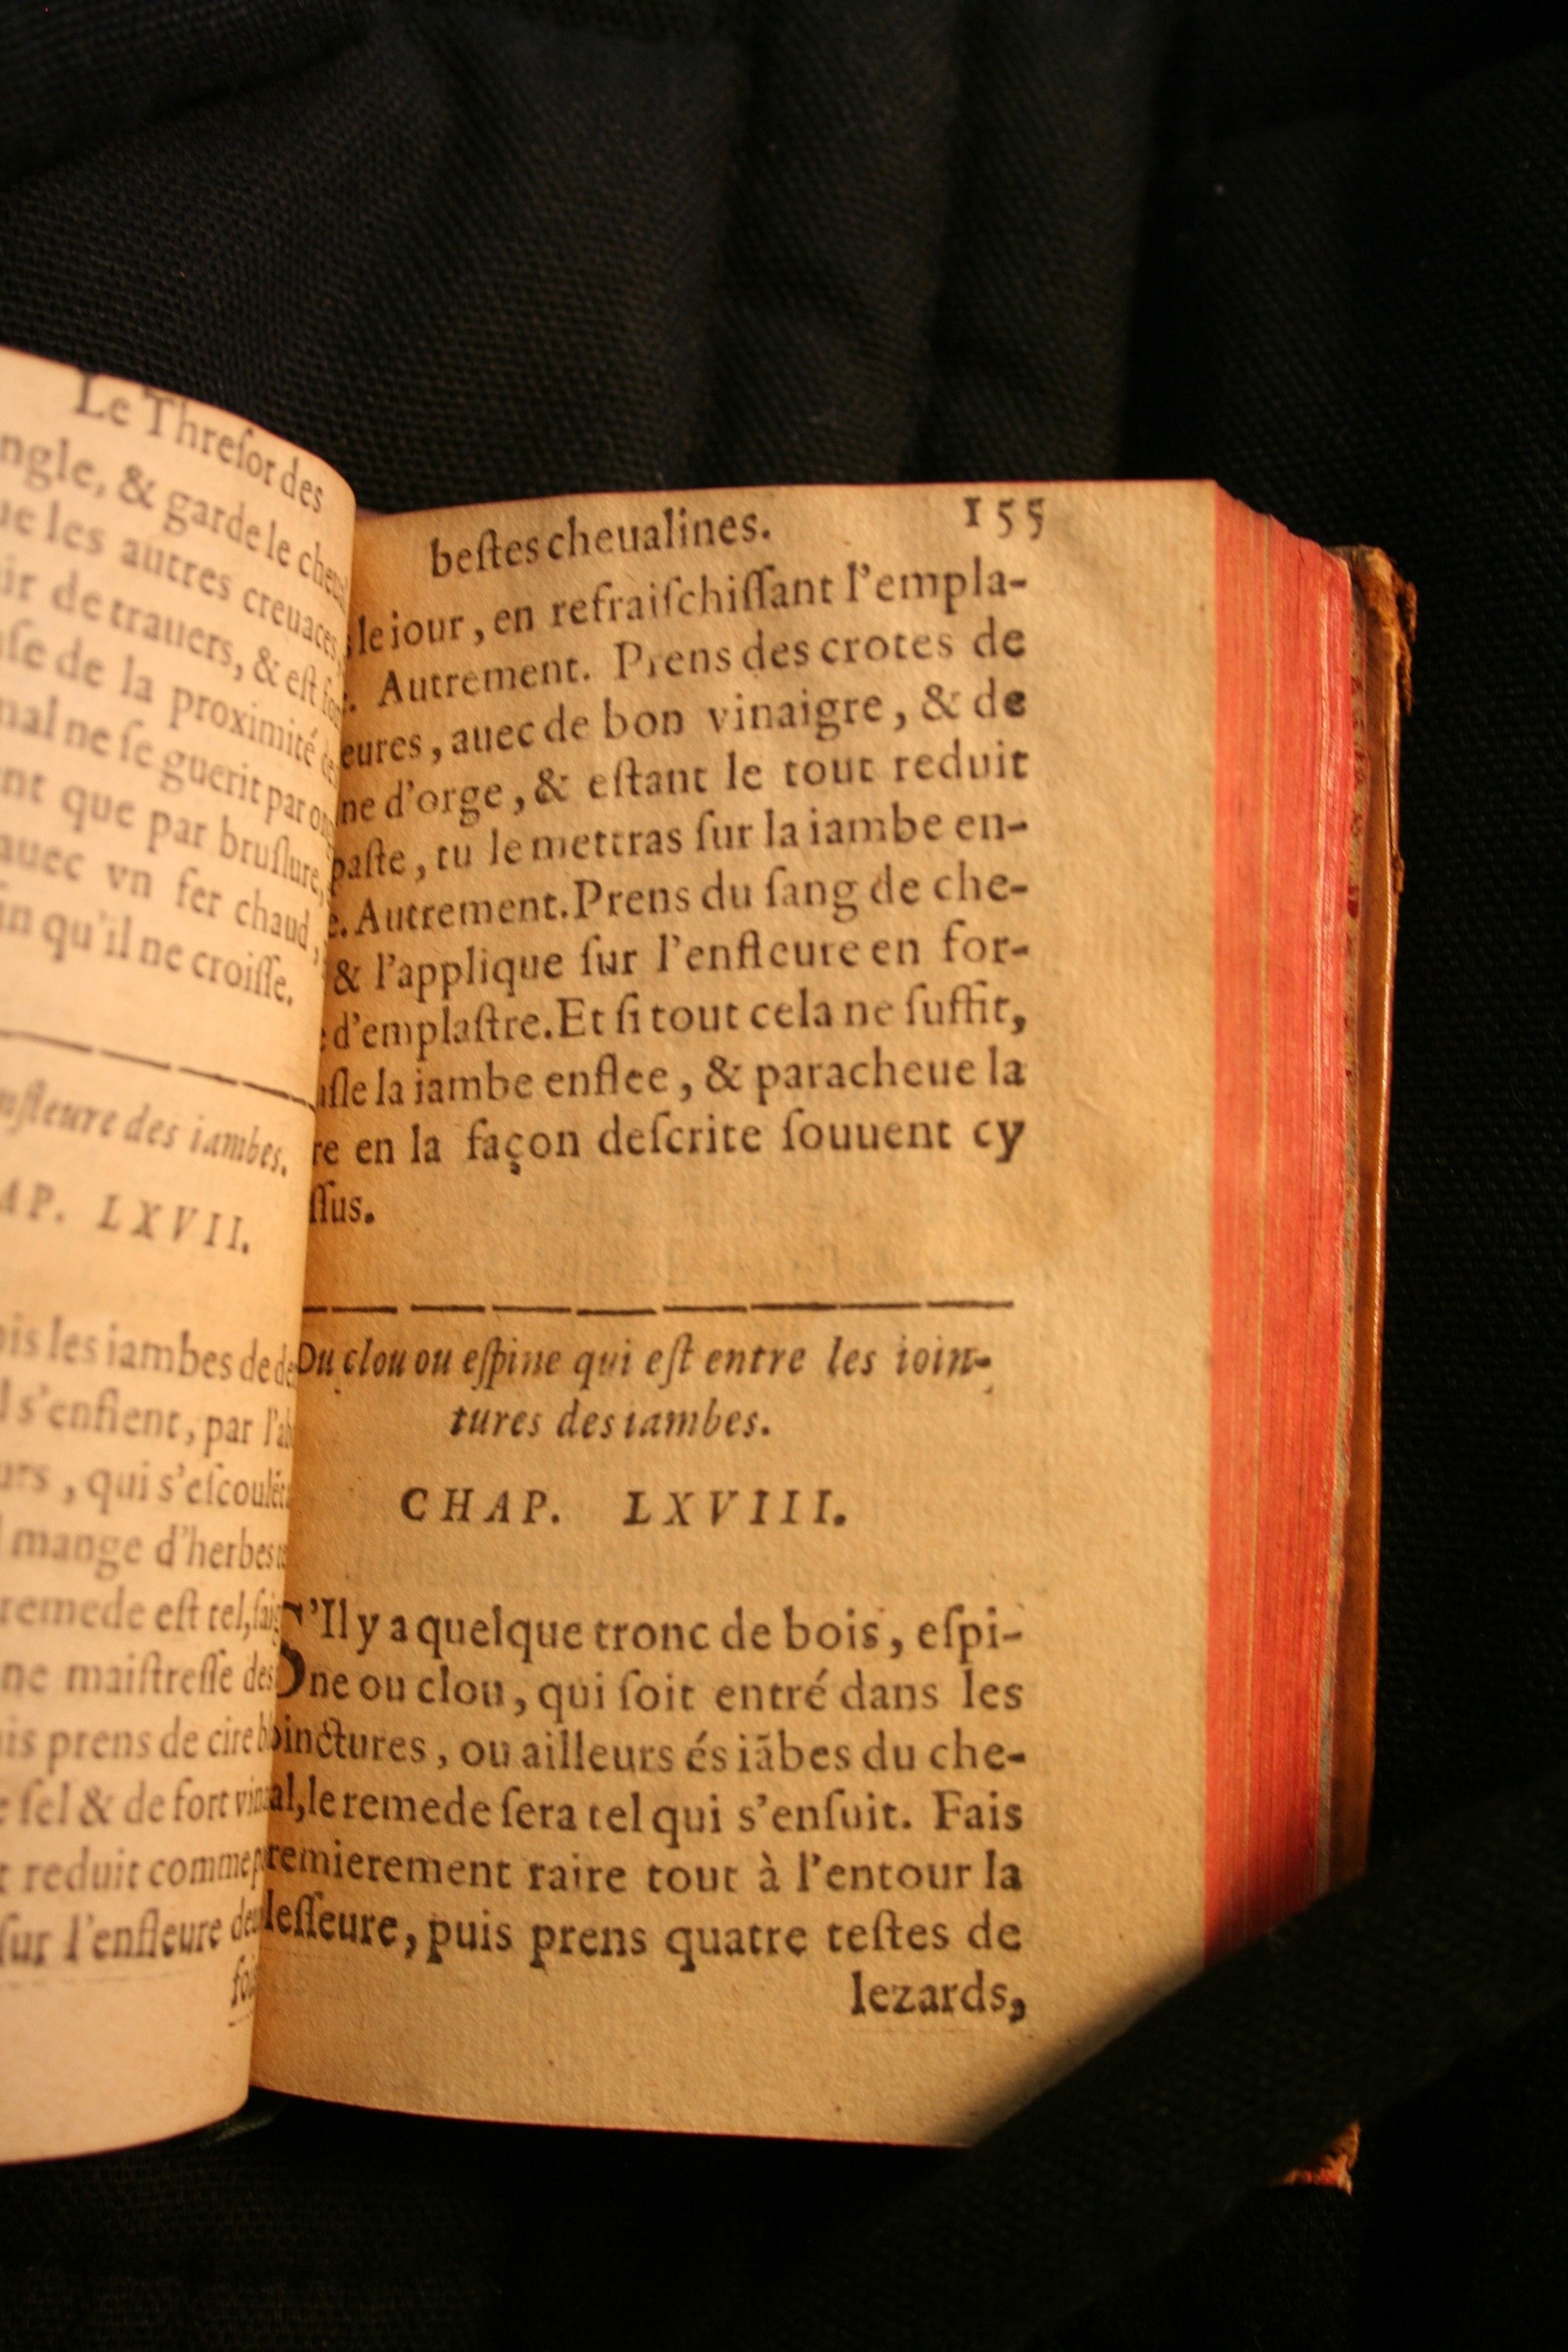 Le Threſor des
ngle, & garde le
ue les autres creuaces,
ir de trauers, & eſt
de la proximité
mal ne ſe guerit par
nt que par bruſlure,
auec vn fer chaud,
in qu'il ne croiſſe.
nfleure des iambes.
AP. LXVII.
les iambes de
s'enflent, par
qui s'eſcoulẽt
mange d'herbes
remede eſt tel,
ne maiſtreſſe des
is prens de cire
ſel & de fort
reduit comme
ſur l'enfleure
beſtes cheualines. 155
le iour, en refraiſchiſſant l'empla-
. Autrement. Prens des crotes de
eures, auec de bon vinaigre, & de
ne d'orge, & eſtant le tout reduit
paſte, tu le mettras ſur la iambe en-
e. Autrement. Prens du ſang de che-
& l'applique ſur l'enfleure en for-
d'emplaſtre. Et ſi tout cela ne ſuffit,
uſle la iambe enflee, & paracheue la
re en la façon deſcrite ſouuent cy
ſſus.
Du clou ou eſpine qui eſt entre les ioin-
tures des iambes.
CHAP. LXVIII.
S'Il y a quelque tronc de bois, eſpi-
ne ou clou, qui ſoit entré dans les
oinctures, ou ailleurs és iãbes du che-
al, le remede ſera tel qui s'enſuit. Fais
remierement raire tout à l'entour la
leſſeure, puis prens quatre teſtes de
lezards,